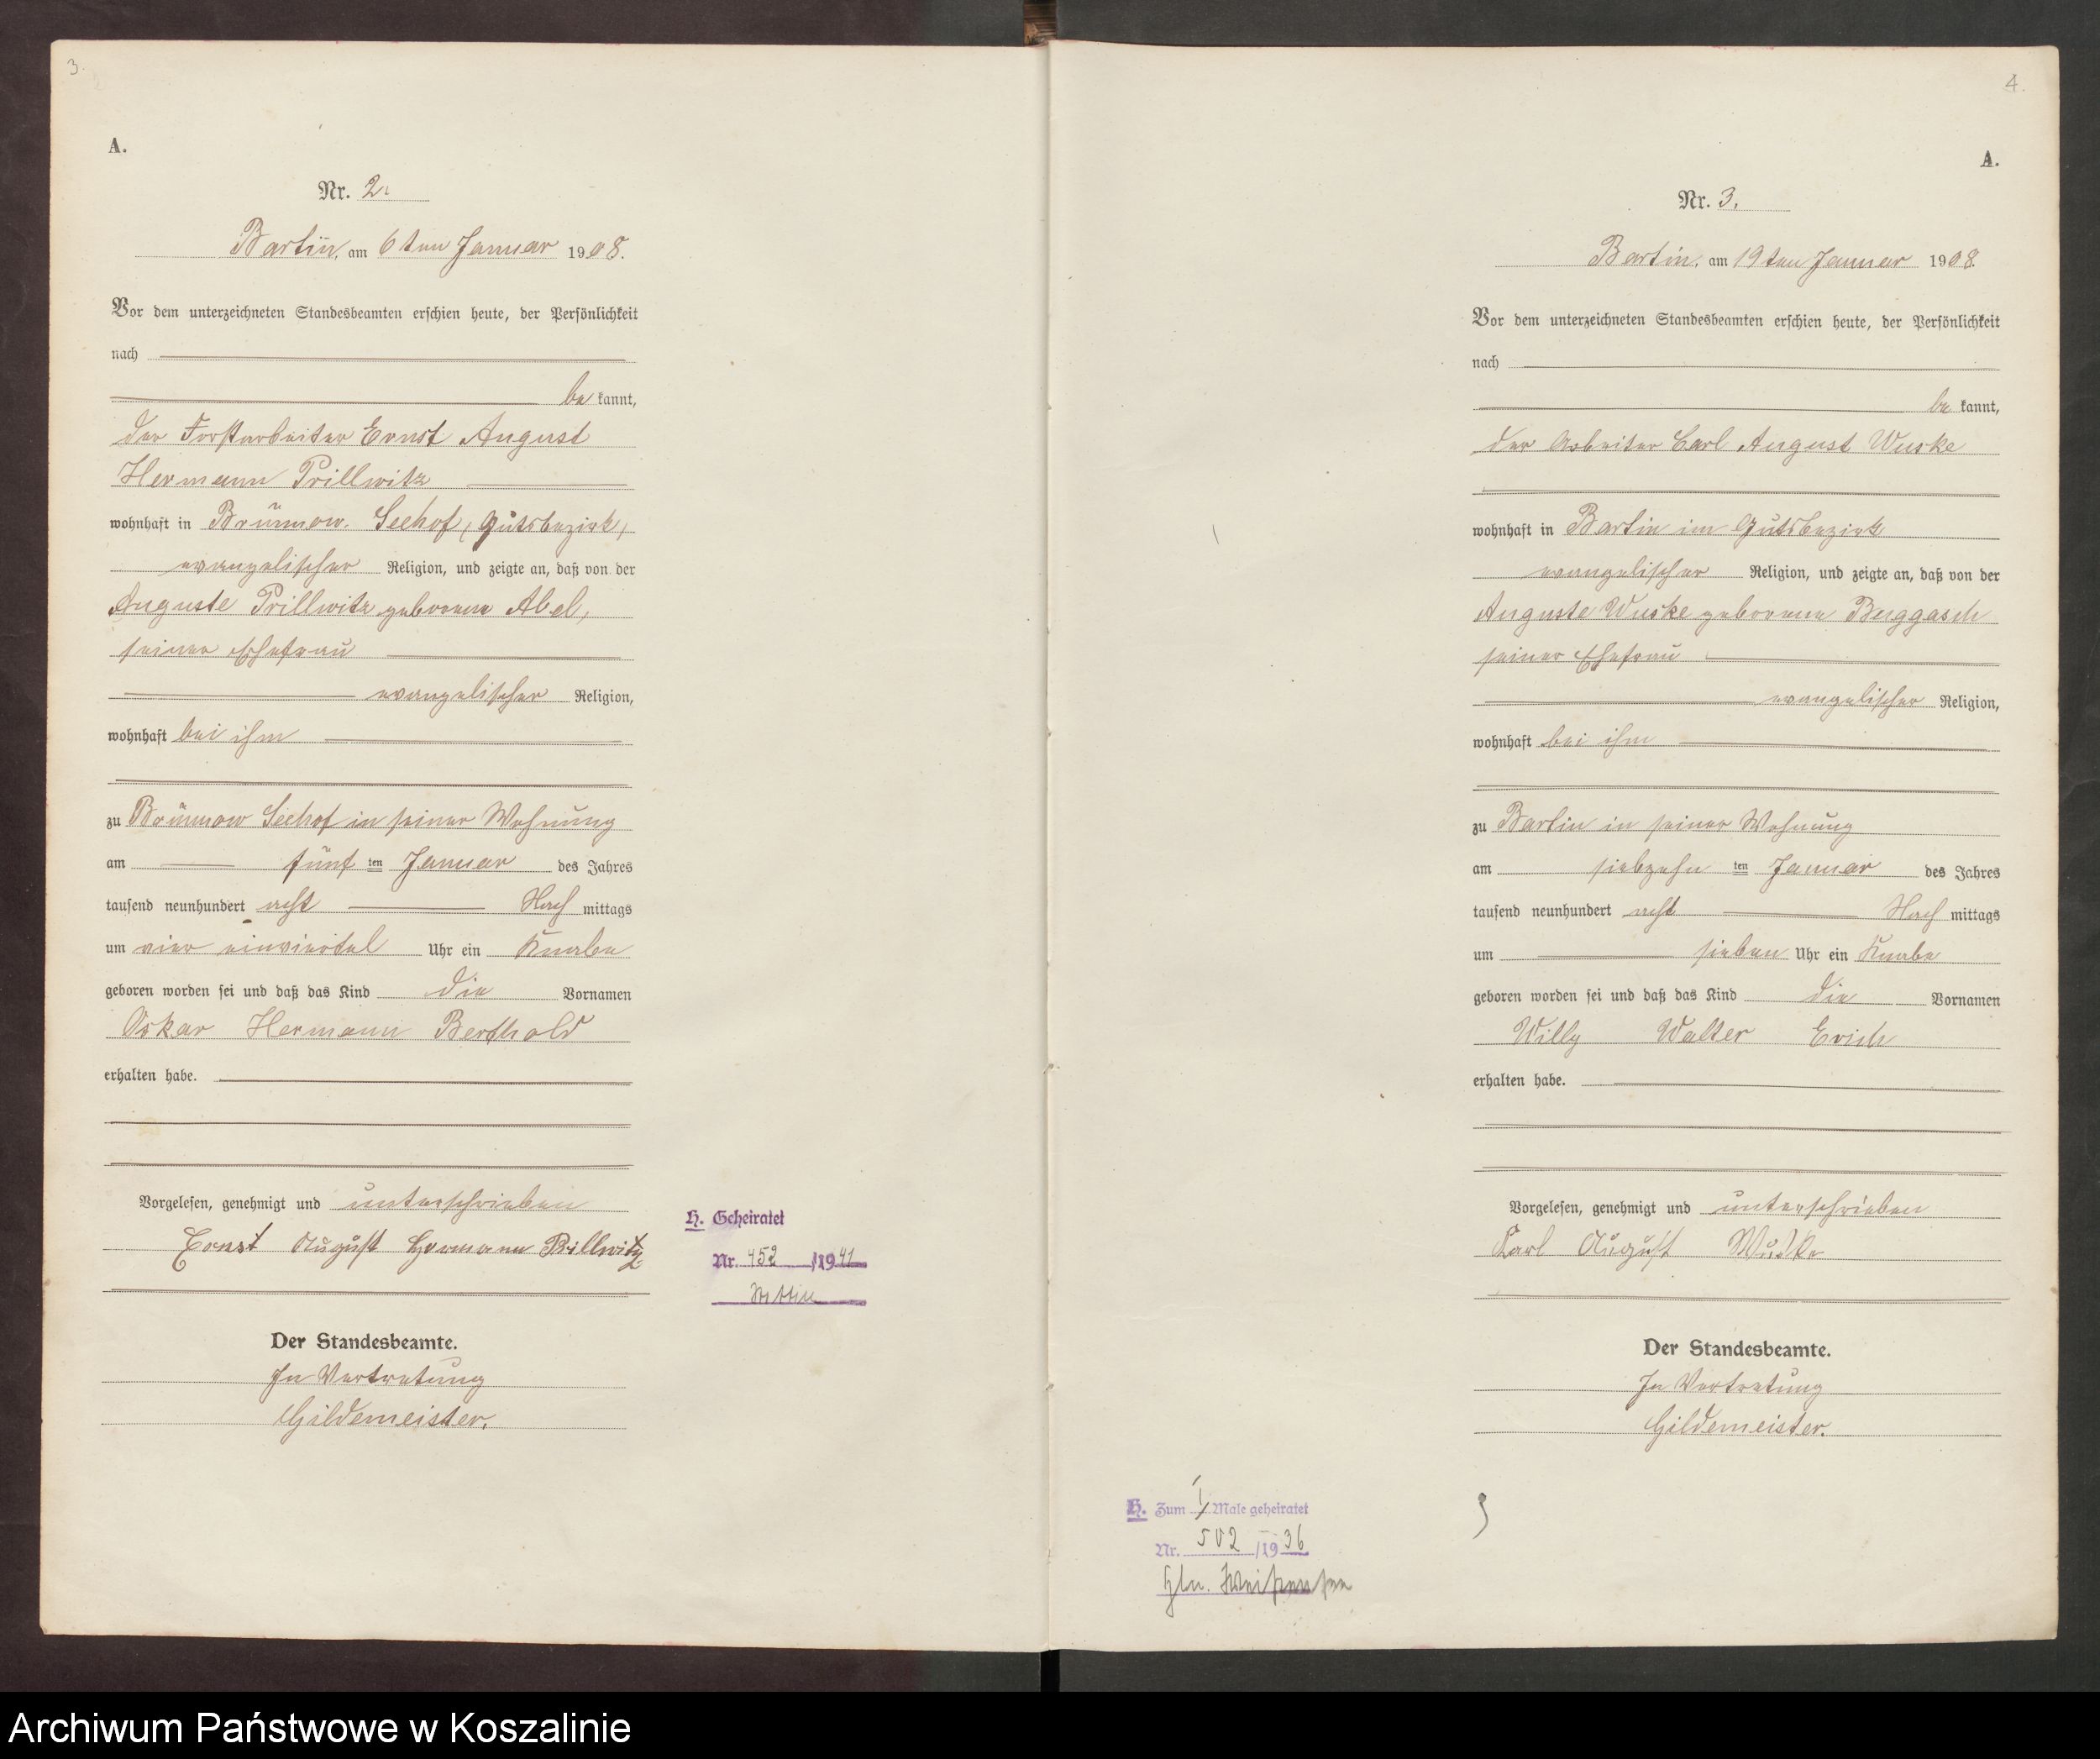 3.
A.
Nr. 2.
Bartin, am 6ten Januar 1908.
Vor dem unterzeichneten Standesbeamten erschien heute, der Persönlichkeit
nach
bekannt,
der Forstarbeiter Ernst August
Hermann Prillwitz
wohnhaft in Brünnow. Seehof, Gutsbezirk,
evangelischer Religion, und zeigte an, daß von der
Auguste Prillwitz geborene Abel,
seiner Ehefrau
evangelischer Religion,
wohnhaft bei ihm
zu Brünnow Seehof in seiner Wohnung
am fünf ten Januar des Jahres
tausend neunhundert acht Nach mittags
um vier einviertel Uhr ein Knabe
geboren worden sei und daß das Kind die Vornamen
Oskar Hermann Berthold
erhalten habe.
Vorgelesen, genehmigt und unterschrieben
Ernst August Hermann Prillwitz
Der Standesbeamte.
In Vertretung
Gildemeister.
H. Geheiratet
Nr. 452 /1941
Stettin
4.
A.
Nr. 3.
Bartin, am 19ten Januar 1908.
Vor dem unterzeichneten Standesbeamten erschien heute, der Persönlichkeit
nach
bekannt,
der Arbeiter Carl August Wuske
wohnhaft in Bartin im Gutsbezirk
evangelischer Religion, und zeigte an, daß von der
Auguste Wuske geborene Buggasch
seiner Ehefrau
evangelischer Religion,
wohnhaft bei ihm
zu Bartin in seiner Wohnung
am siebzehn ten Januar des Jahres
tausend neunhundert acht Nach mittags
um sieben Uhr ein Knabe
geboren worden sei und daß das Kind die Vornamen
Willy Walter Erich
erhalten habe.
Vorgelesen, genehmigt und unterschrieben
Karl August Wuske
Der Standesbeamte.
In Vertretung
Gildemeister.
H. Zum I Male geheiratet
Nr. 502 /1936
Bln. Weißensee
Archiwum Państwowe w Koszalinie